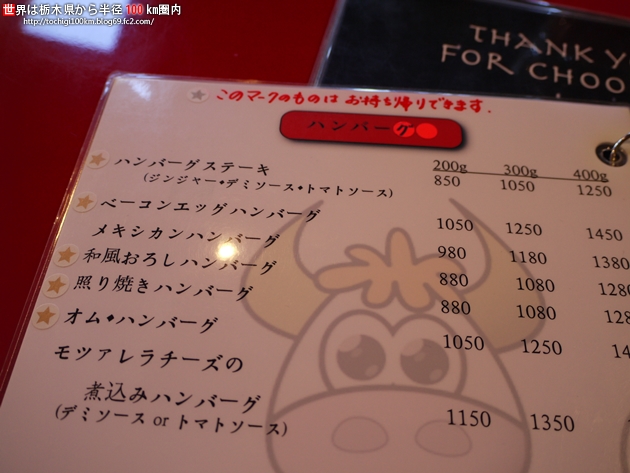 世界は栃木県から半径 100 km圏内
http://tochigi100km.blog69.fc2.com/
THANK Y
FOR CHOO
このマークのものは お持ち帰りできます.
ハンバーグ
200g 300g 400g
ハンバーグステーキ 850 1050 1250
(ジンジャー・デミソース・トマトソース)
ベーコンエッグハンバーグ 1050 1250 1450
メキシカンハンバーグ 980 1180 1380
和風おろしハンバーグ 880 1080 128
照り焼きハンバーグ 880 1080 128
オム・ハンバーグ 1050 1250 14
モツァレラチーズの
煮込みハンバーグ 1150 1350
(デミソース or トマトソース)